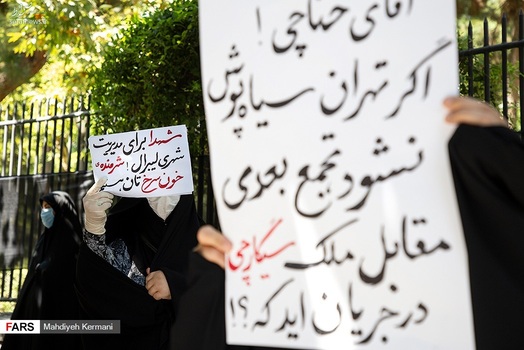 آقای حناچی !
اگر تهران سیاه پوش
نشود تجمع بعدی
مقابل ملک سیگارچی
در جریان اید که ؟!
شهدا برای مدیریت
شهری لیبرال ! شرمنده ی
خون سرخ تان
FARS
Mahdiyeh Kermani